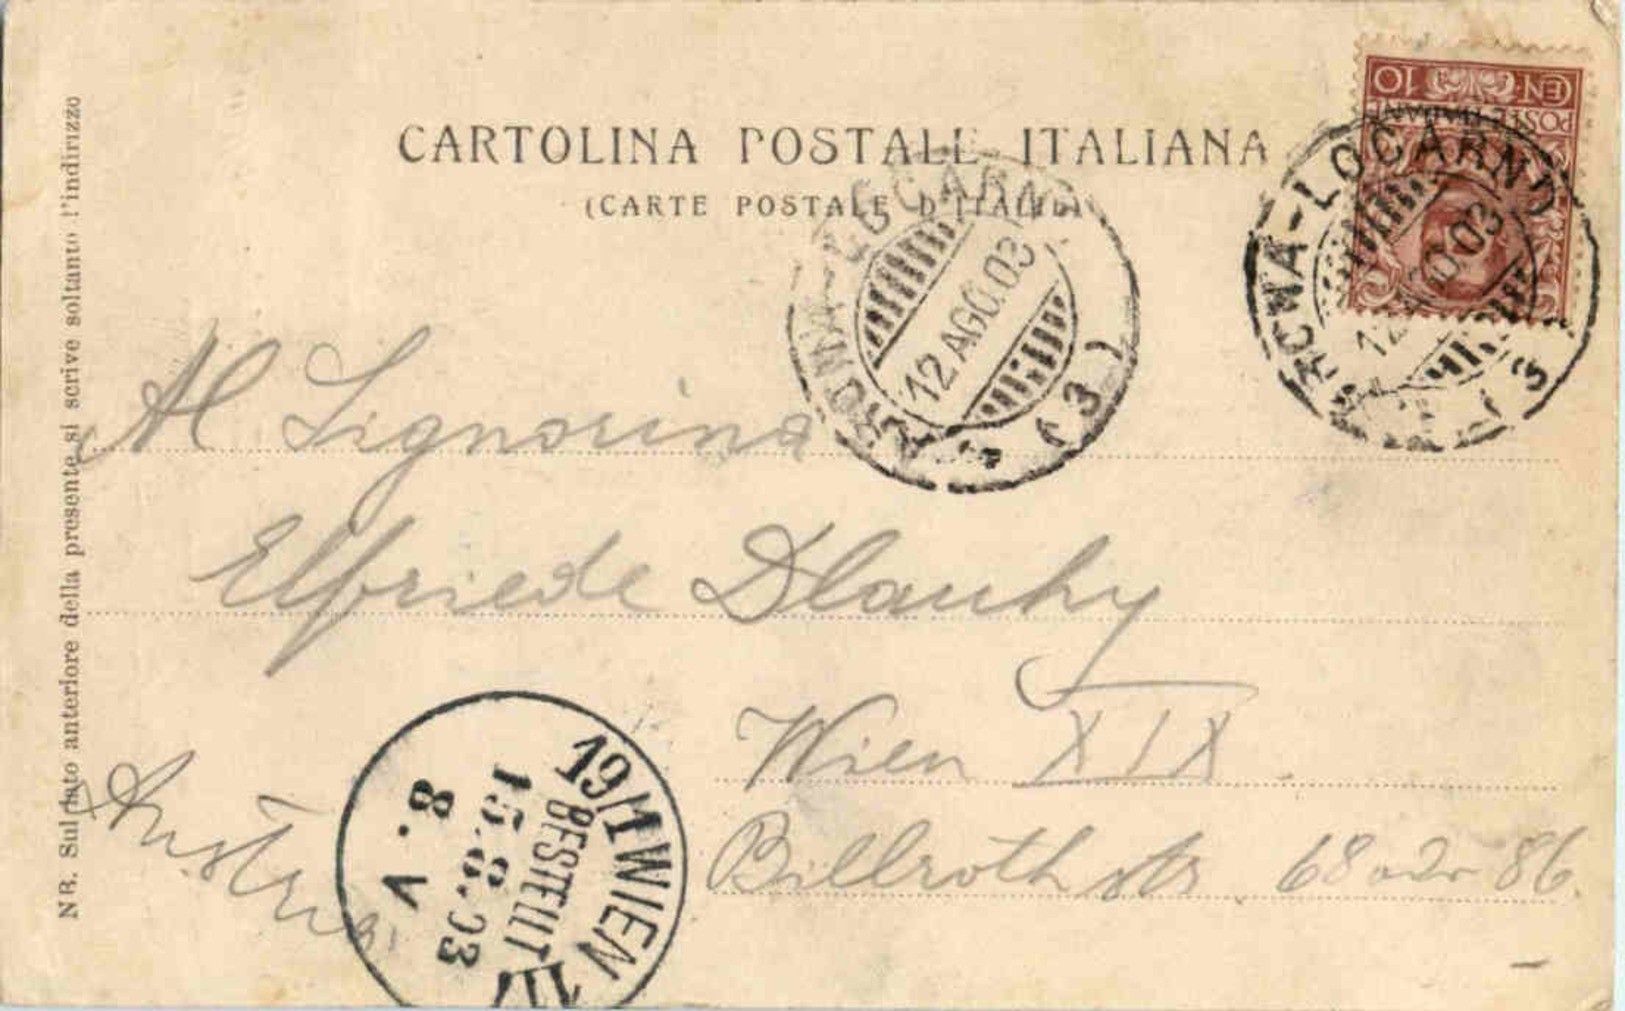 CARTOLINA POSTALE ITALIANA
(CARTE POSTALE D'ITALIE)
CEN. 10
POSTE ITALIANE
ARONA-LOCARNO
12 AGO. 03
(3)
ARONA-LOCARNO
12 AGO. 03
(3)
Al Signorina
Elfriede Dlauhy
Wien XIX
Billrothstr 68 odr 86.
Austria
19/1 WIEN
BESTELLT
15.8.03
8.V
NB. Sul lato anteriore della presente si scrive soltanto l'indirizzo